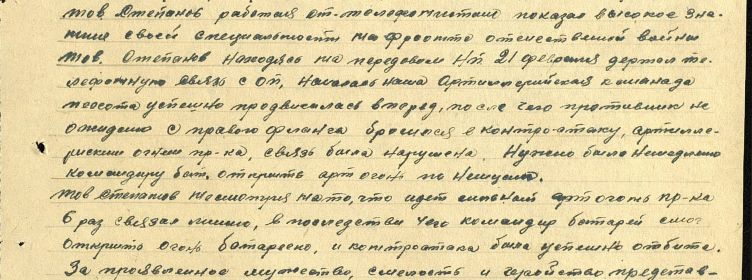 тов. Степанов работая ст-телефонистом показал высокое зна-
ния своей специальности на фронте отечественной войны
тов. Степанов находясь на передовом НП 21 февраля держал те-
лефонную связь с ОП, наша Артиллерийская
пехота успешно продвигалась вперед, после чего противник не
ожиданно с правого фланга бросился в контр-атаку, артилле-
риским огнем пр-ка, связь была нарушена. Нужно было немедленно
командиру бат. открыть арт огонь по немцам.
тов Степанов несмотря на то, что идет сильный арт огонь пр-ка
6 раз связал линию, в последствии чего командир батареи смог
Открыть огонь батареею, и контратака была успешно отбита.
За проявленное мужество, смелость и геройство представ-